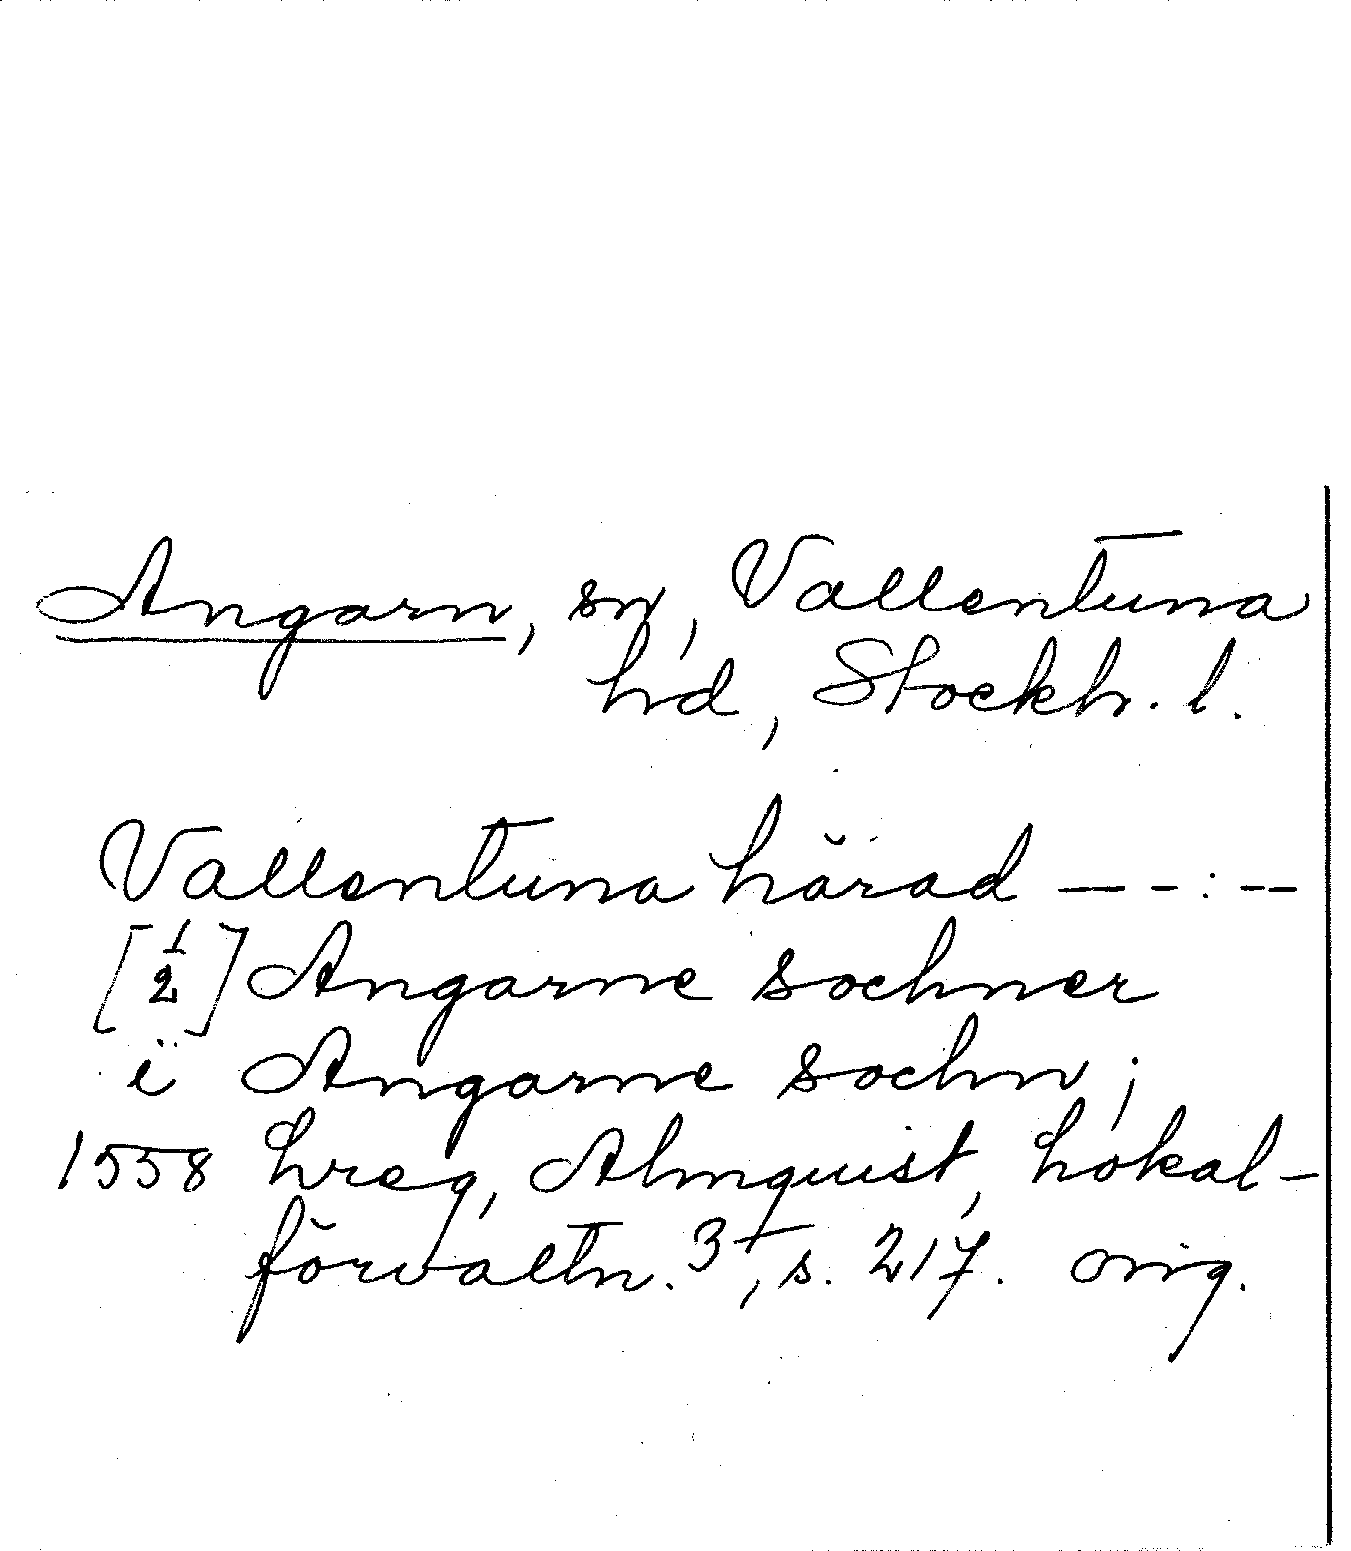 Angarn, sn, Vallentuna
hd, Stockh. l.
Vallentuna härad — - : --
[½] Angarne sochner
i Angarne sochn;
1558 hreg, Almquist, Lokal-
förvaltn. 3, s. 217. orig.